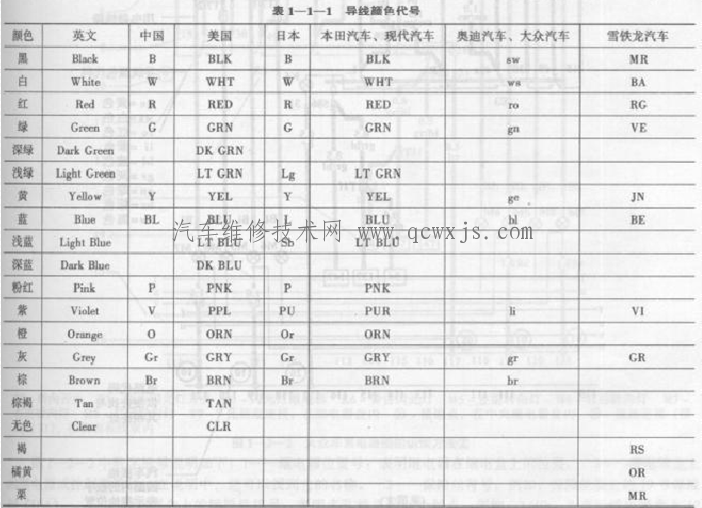 表1—1—1 导线颜色代号
颜色 英文 中国 美国 日本 本田汽车、现代汽车 奥迪汽车、大众汽车 雪铁龙汽车
黑 Black B BLK B BLK sw MR
白 White W WHT W WHT ws BA
红 Red R RED R RED ro RG
绿 Green G GRN G GRN gn VE
深绿 Dark Green DK GRN
浅绿 Light Green LT GRN Lg LT GRN
黄 Yellow Y YEL Y YEL ge JN
蓝 Blue BL BLU L BLU bl BE
汽车维修技术网 www.qcwxjs.com
浅蓝 Light Blue LT BLU Sb LT BLU
深蓝 Dark Blue DK BLU
粉红 Pink P PNK P PNK
紫 Violet V PPL PU PUR li VI
橙 Orange O ORN Or ORN
灰 Grey Gr GRY Gr GRY gr GR
棕 Brown Br BRN Br BRN br
棕褐 Tan TAN
无色 Clear CLR
褐 RS
橘黄 OR
栗 MR